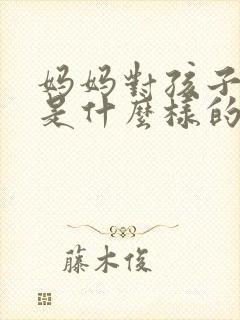 妈妈對孩子
是什麼樣的
藤木俊